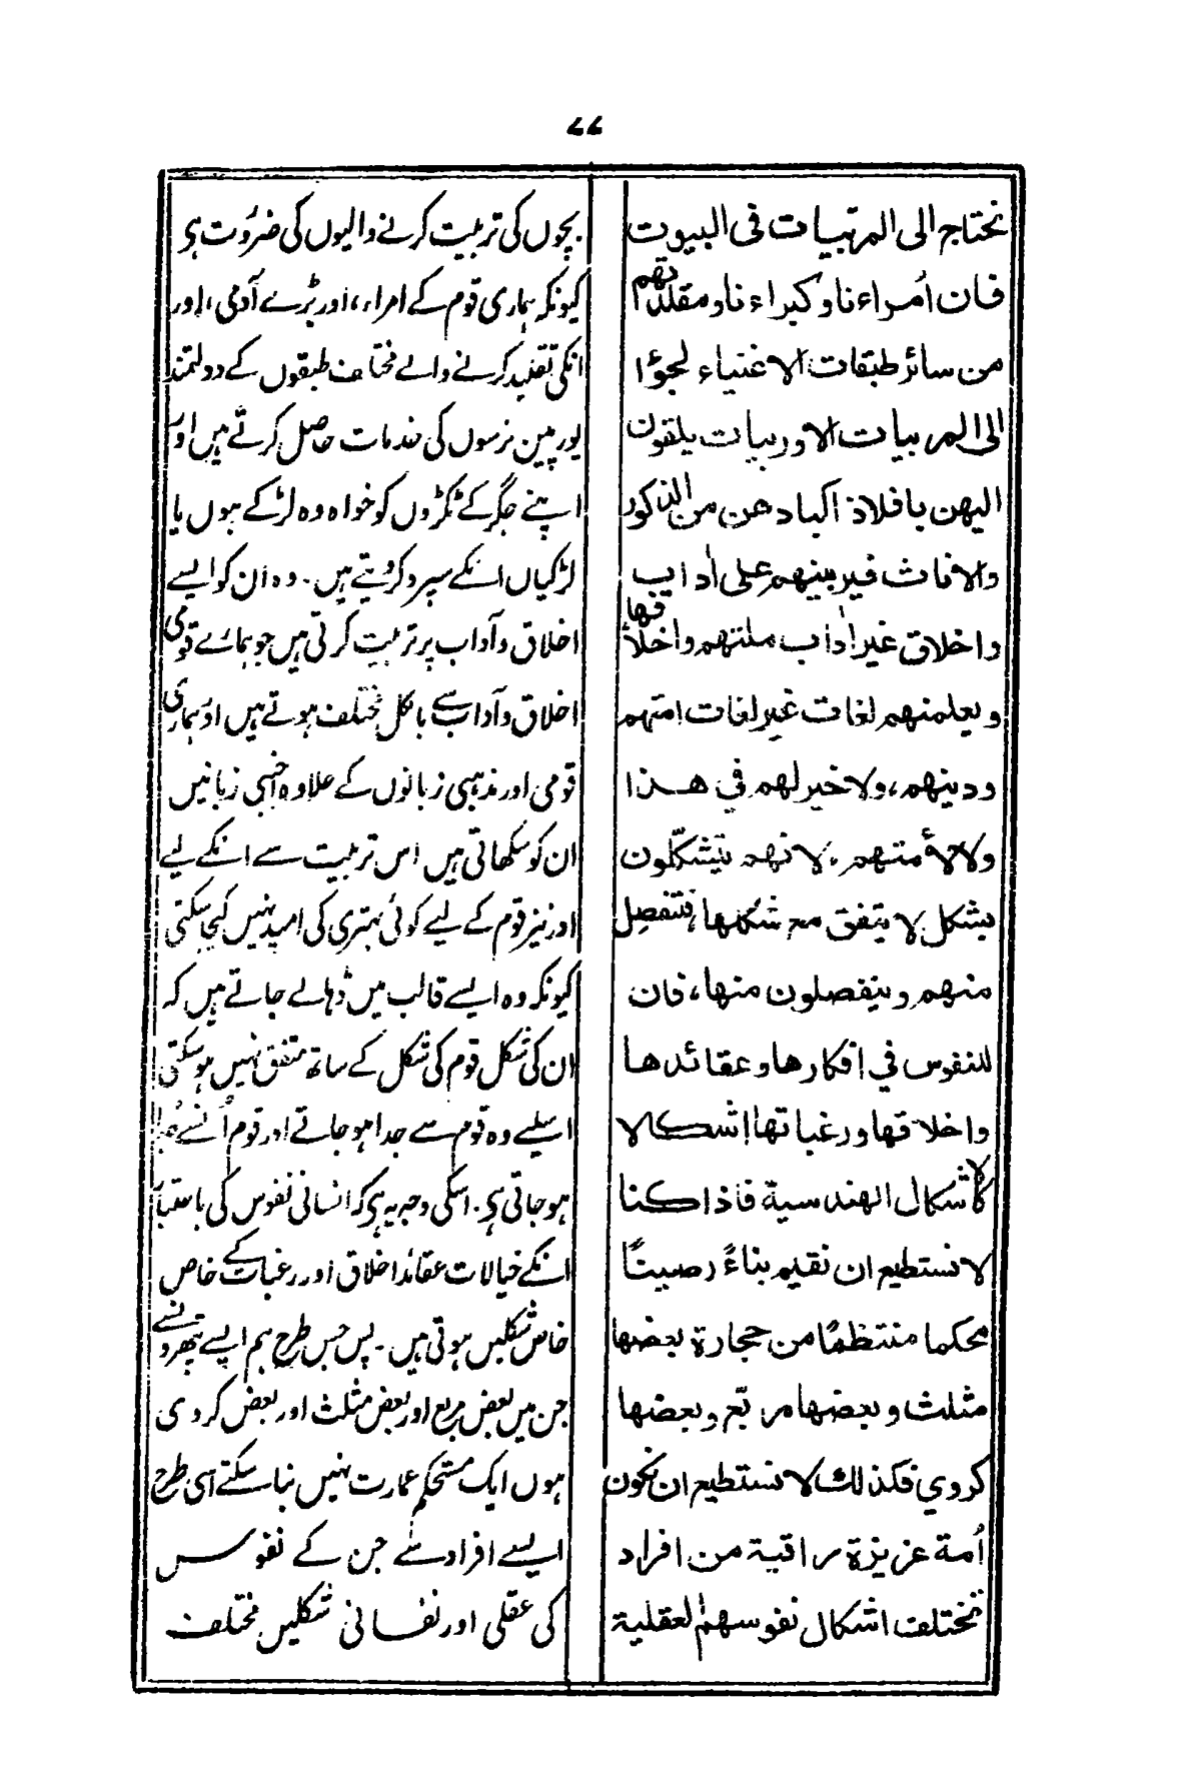 ۷۷
نحتاج الى المرتبيات فى البيوت
فان اُمراءنا وكبراءنا ومقلديهم
من سائر طبقات الاغنياء لجؤا
الى المربيات الاوربيات يلقون
اليهن بافلاذ اكبادهن من الذكور
والاناث فيربينهم على اٰداب
واخلاق غير اٰداب ملتهم واخلاقها
ويعلمنهم لغات غير لغات امتهم
ودينهم، ولا خير لهم في هذا
ولا لأمتهم، لانهم يتشكّلون
بشكل لا يتفق مع شكلها، فتنفصل
منهم وينفصلون منها، فان
للنفوس في افكارها وعقائدها
واخلاقها ورغباتها اشكالا
كالاشكال الهندسية فاذا كنا
لا نستطيع ان نقيم بناءً رصينًا
محكما منتظمًا من حجارة بعضها
مثلث وبعضها مربّع وبعضها
كروي فكذلك لا نستطيع ان نكون
اُمة عزيزة راقية من افراد
تختلف اشكال نفوسهم العقلية
بچوں کی تربیت کرنے والیوں کی ضرورت ہی
کیونکہ ہماری قوم کے امراء، اور بڑے آدمی، اور
انکی تقلید کرنے والے مختلف طبقوں کے دولتمند
یورپین نرسوں کی خدمات حاصل کرتے ہیں اور
اپنے جگر کے ٹکڑوں کو خواہ وہ لڑکے ہوں یا
لڑکیاں انکے سپرد کردیتے ہیں۔ وہ ان کو ایسے
اخلاق وآداب پر تربیت کرتی ہیں جو ہمارے قومی
اخلاق وآداب سے بالکل مختلف ہوتے ہیں اور ہماری
قومی اور مذہبی زبانوں کے علاوہ اجنبی زبانیں
ان کو سکھاتی ہیں اس تربیت سے انکے لیے
اور نیز قوم کے لیے کوئی بہتری کی امید نہیں کیجاسکتی
کیونکہ وہ ایسے قالب میں ڈہالے جاتے ہیں کہ
ان کی شکل قوم کی شکل کے ساتھ متفق نہیں ہوسکتی
اسلیے وہ قوم سے جدا ہوجاتے اور قوم اُنسے جدا
ہوجاتی ہی۔ اسکی وجہ یہ ہی کہ انسانی نفوس کی باعتبار
انکے خیالات عقائد اخلاق اور رغبات کے خاص
خاص شکلیں ہوتی ہیں۔ پس جس طرح ہم ایسے پتھروں سے
جن میں بعض مربع اور بعض مثلث اور بعض کروی
ہوں ایک مستحکم عمارت نہیں بنا سکتے اسی طرح
ایسے افراد سے جن کے نفوس
کی عقلی اور نفسانی شکلیں مختلف